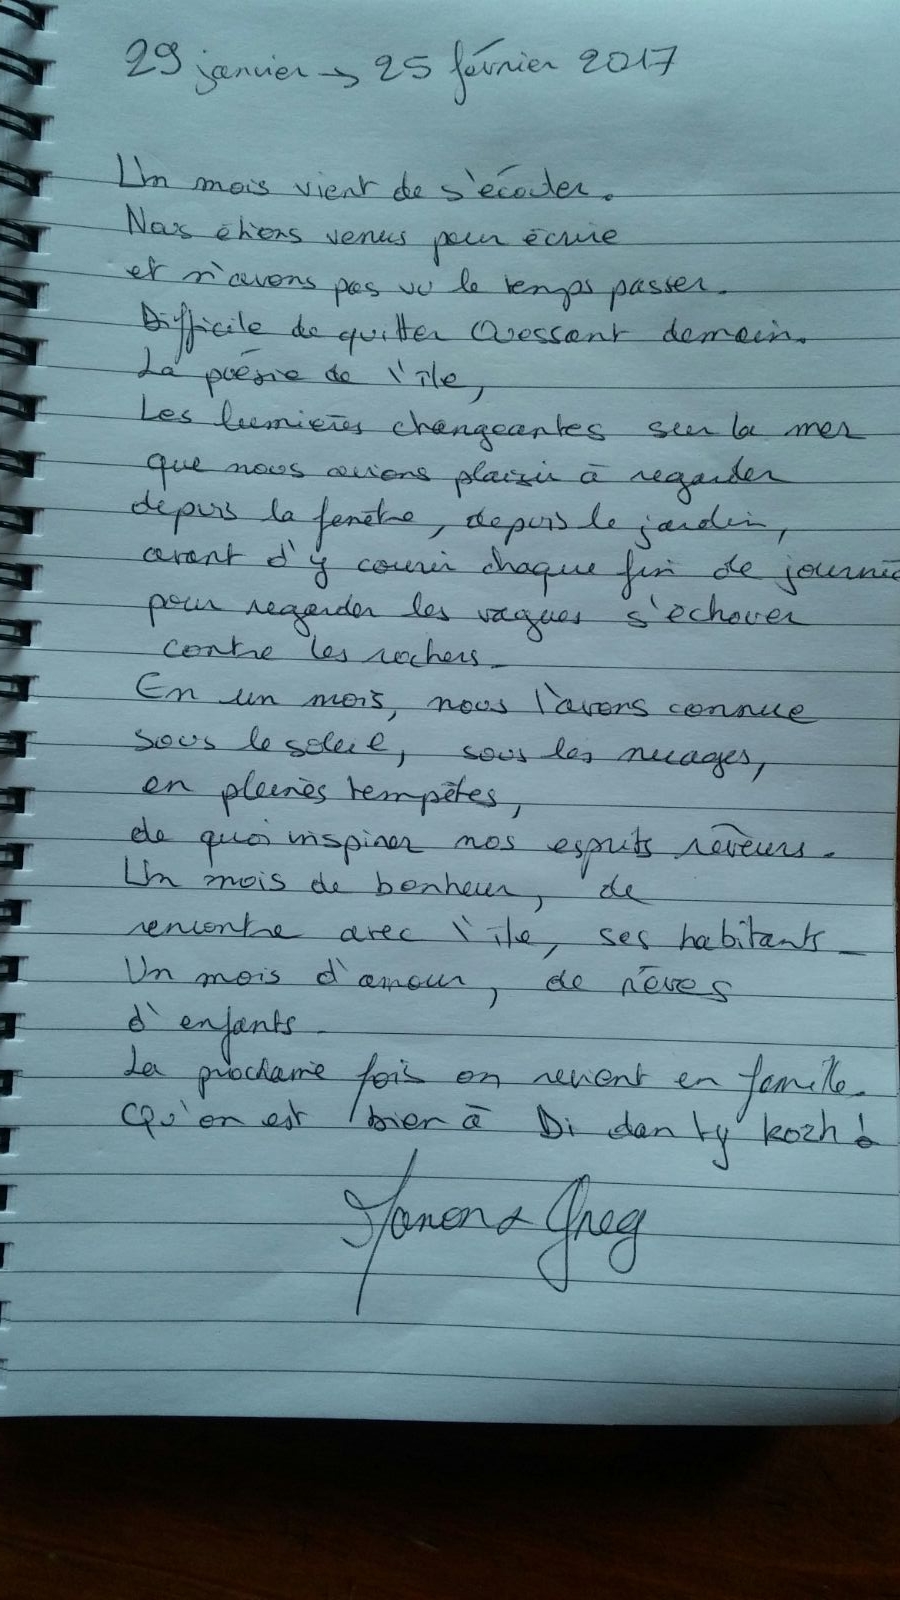 29 janvier → 25 février 2017
Un mois vient de s'écouler.
Nous étions venus pour écrire
et n'avons pas vu le temps passer.
Difficile de quitter Ouessant demain.
La poésie de l'île,
Les lumières changeantes sur la mer
que nous avions plaisir à regarder
depuis la fenêtre, depuis le jardin,
avant d'y courir chaque fin de journée
pour regarder les vagues s'échouer
contre les rochers.
En un mois, nous l'avons connue
sous le soleil, sous les nuages,
en pleines tempêtes,
de quoi inspirer nos esprits rêveurs.
Un mois de bonheur, de
rencontre avec l'île, ses habitants.
Un mois d'amour, de rêves
d'enfants.
La prochaine fois on revient en famille.
Qu'on est bien à Di dan ty kozh !
Manon & Greg